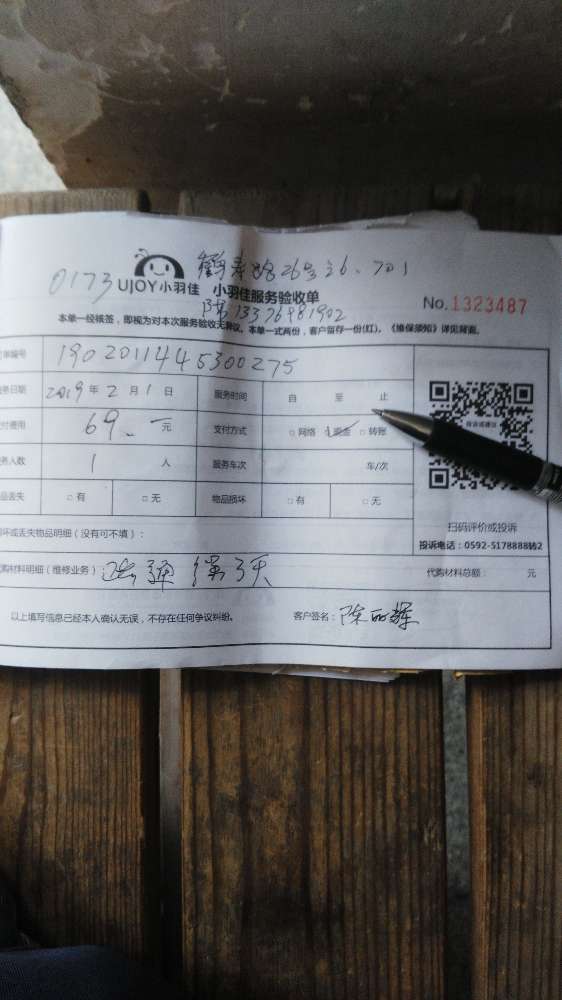 鹤寿路26号之6.701
0173 UJOY小羽佳 小羽佳服务验收单
陈 13376981902
No.1323487
本单一经核签，即视为对本次服务验收无异议。本单一式两份，客户留存一份(红)。《维保须知》详见背面。
单编号 1902011445300275
务日期 2019年2月1日 服务时间 自 至 止
付费用 69.— 元 支付方式 □网络 ☑现金 □转账
务人数 1 人 服务车次 车/次
品丢失 □有 □无 物品损坏 □有 □无
投诉或建议
扫码评价或投诉
投诉电话：0592-5178888转2
坏或丢失物品明细（没有可不填）：
购材料明细（维修业务）：
代购材料总额： 元
以上填写信息已经本人确认无误，不存在任何争议纠纷。 客户签名：陈丽辉